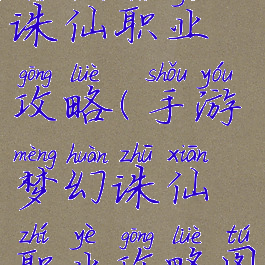 诛仙职业
gōng lüè shǒu yóu
攻略(手游
mèng huàn zhū xiān
梦幻诛仙
zhí yè gōng lüè tú
职业攻略图